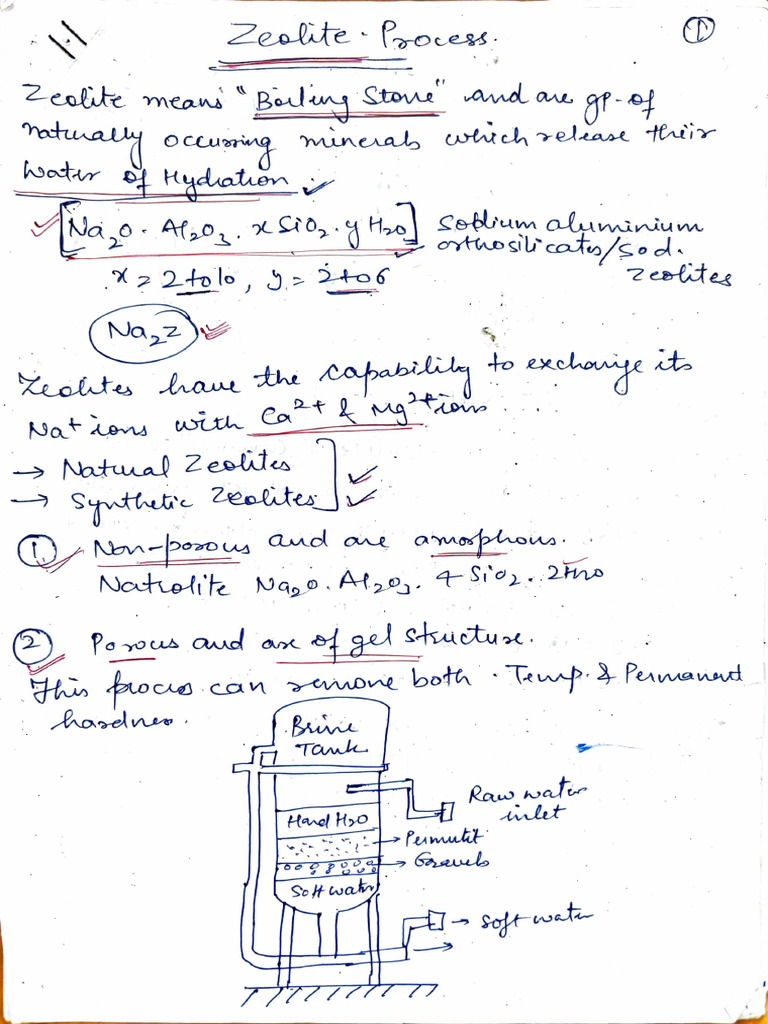 Zeolite Process.
1
Zeolite means "Boiling Stone" and are gp. of
naturally occurring minerals which release their
water of Hydration
[Na2O. Al2O3. xSiO2. yH2O] Sodium aluminium
orthosilicates/Sod.
Zeolites
x = 2 to 10, y = 2 to 6
Na2Z
Zeolites have the capability to exchange its
Na+ ions with Ca2+ & Mg2+ ions
→ Natural Zeolites
→ Synthetic Zeolites
1 Non-porous and are amorphous.
Natrolite Na2O. Al2O3. 4 SiO2. 2H2O
2 Porous and are of gel structure.
This process can remove both Temp. & Permanent
hardness.
Brine
Tank
Raw water
inlet
Hard H2O
→ Permutit
→ Gravels
Soft water
→ soft water